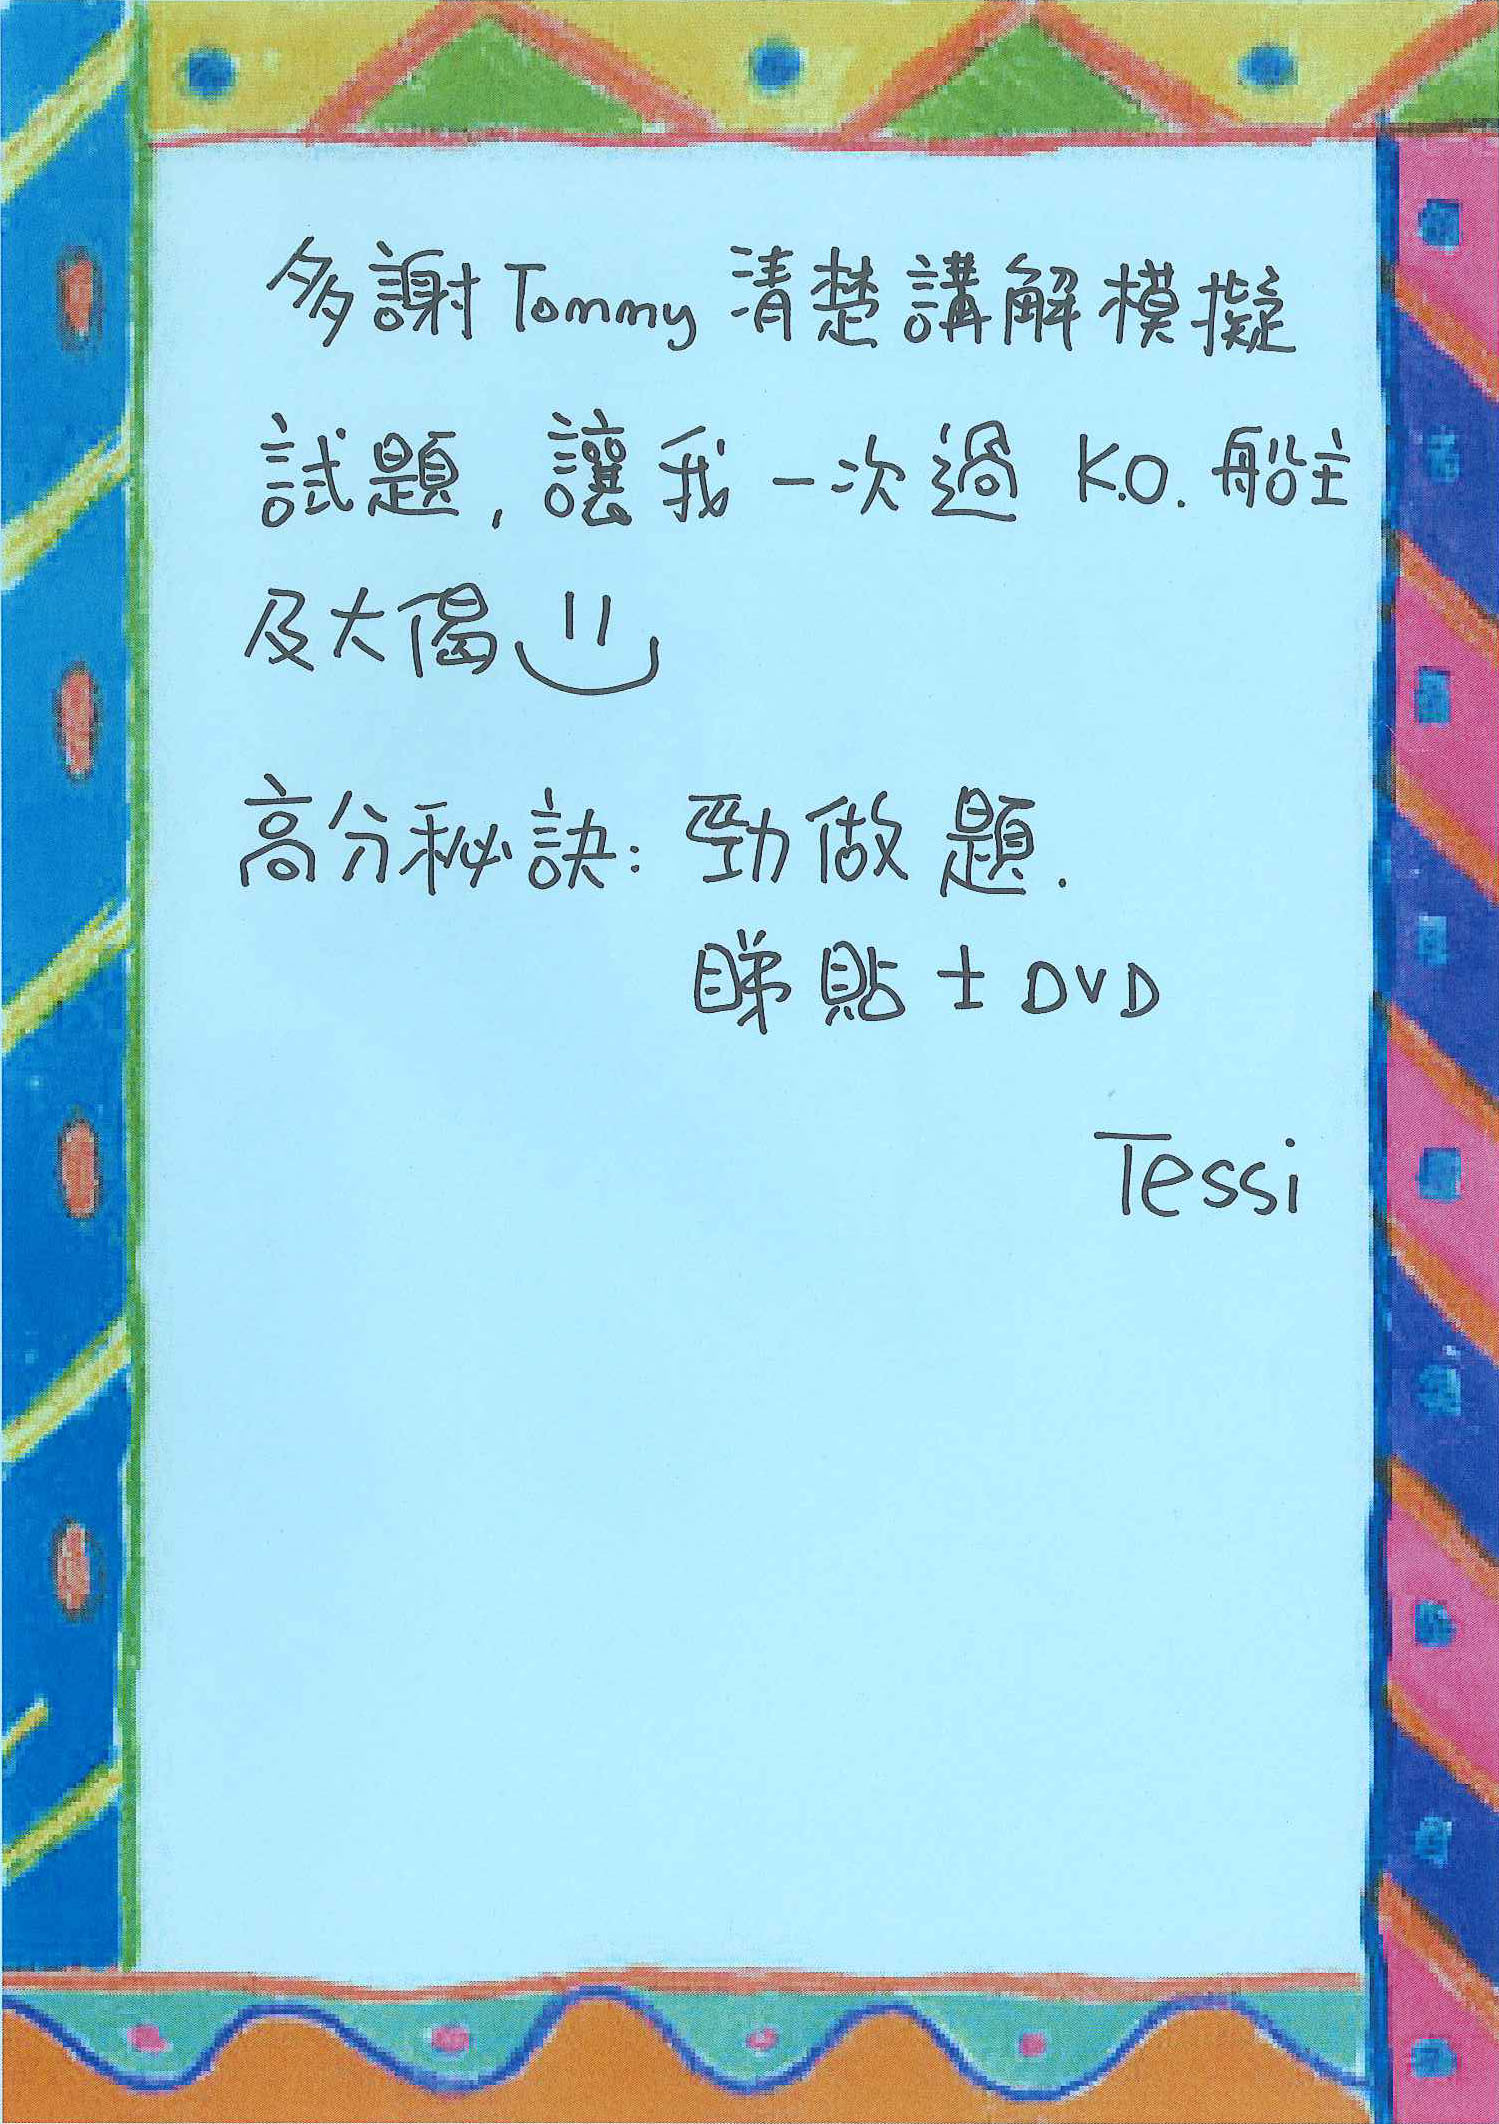 多謝Tommy清楚講解模擬
試題，讓我一次過 K.O. 船主
及大偈
高分秘訣：勁做題．
睇貼士DVD
Tessi